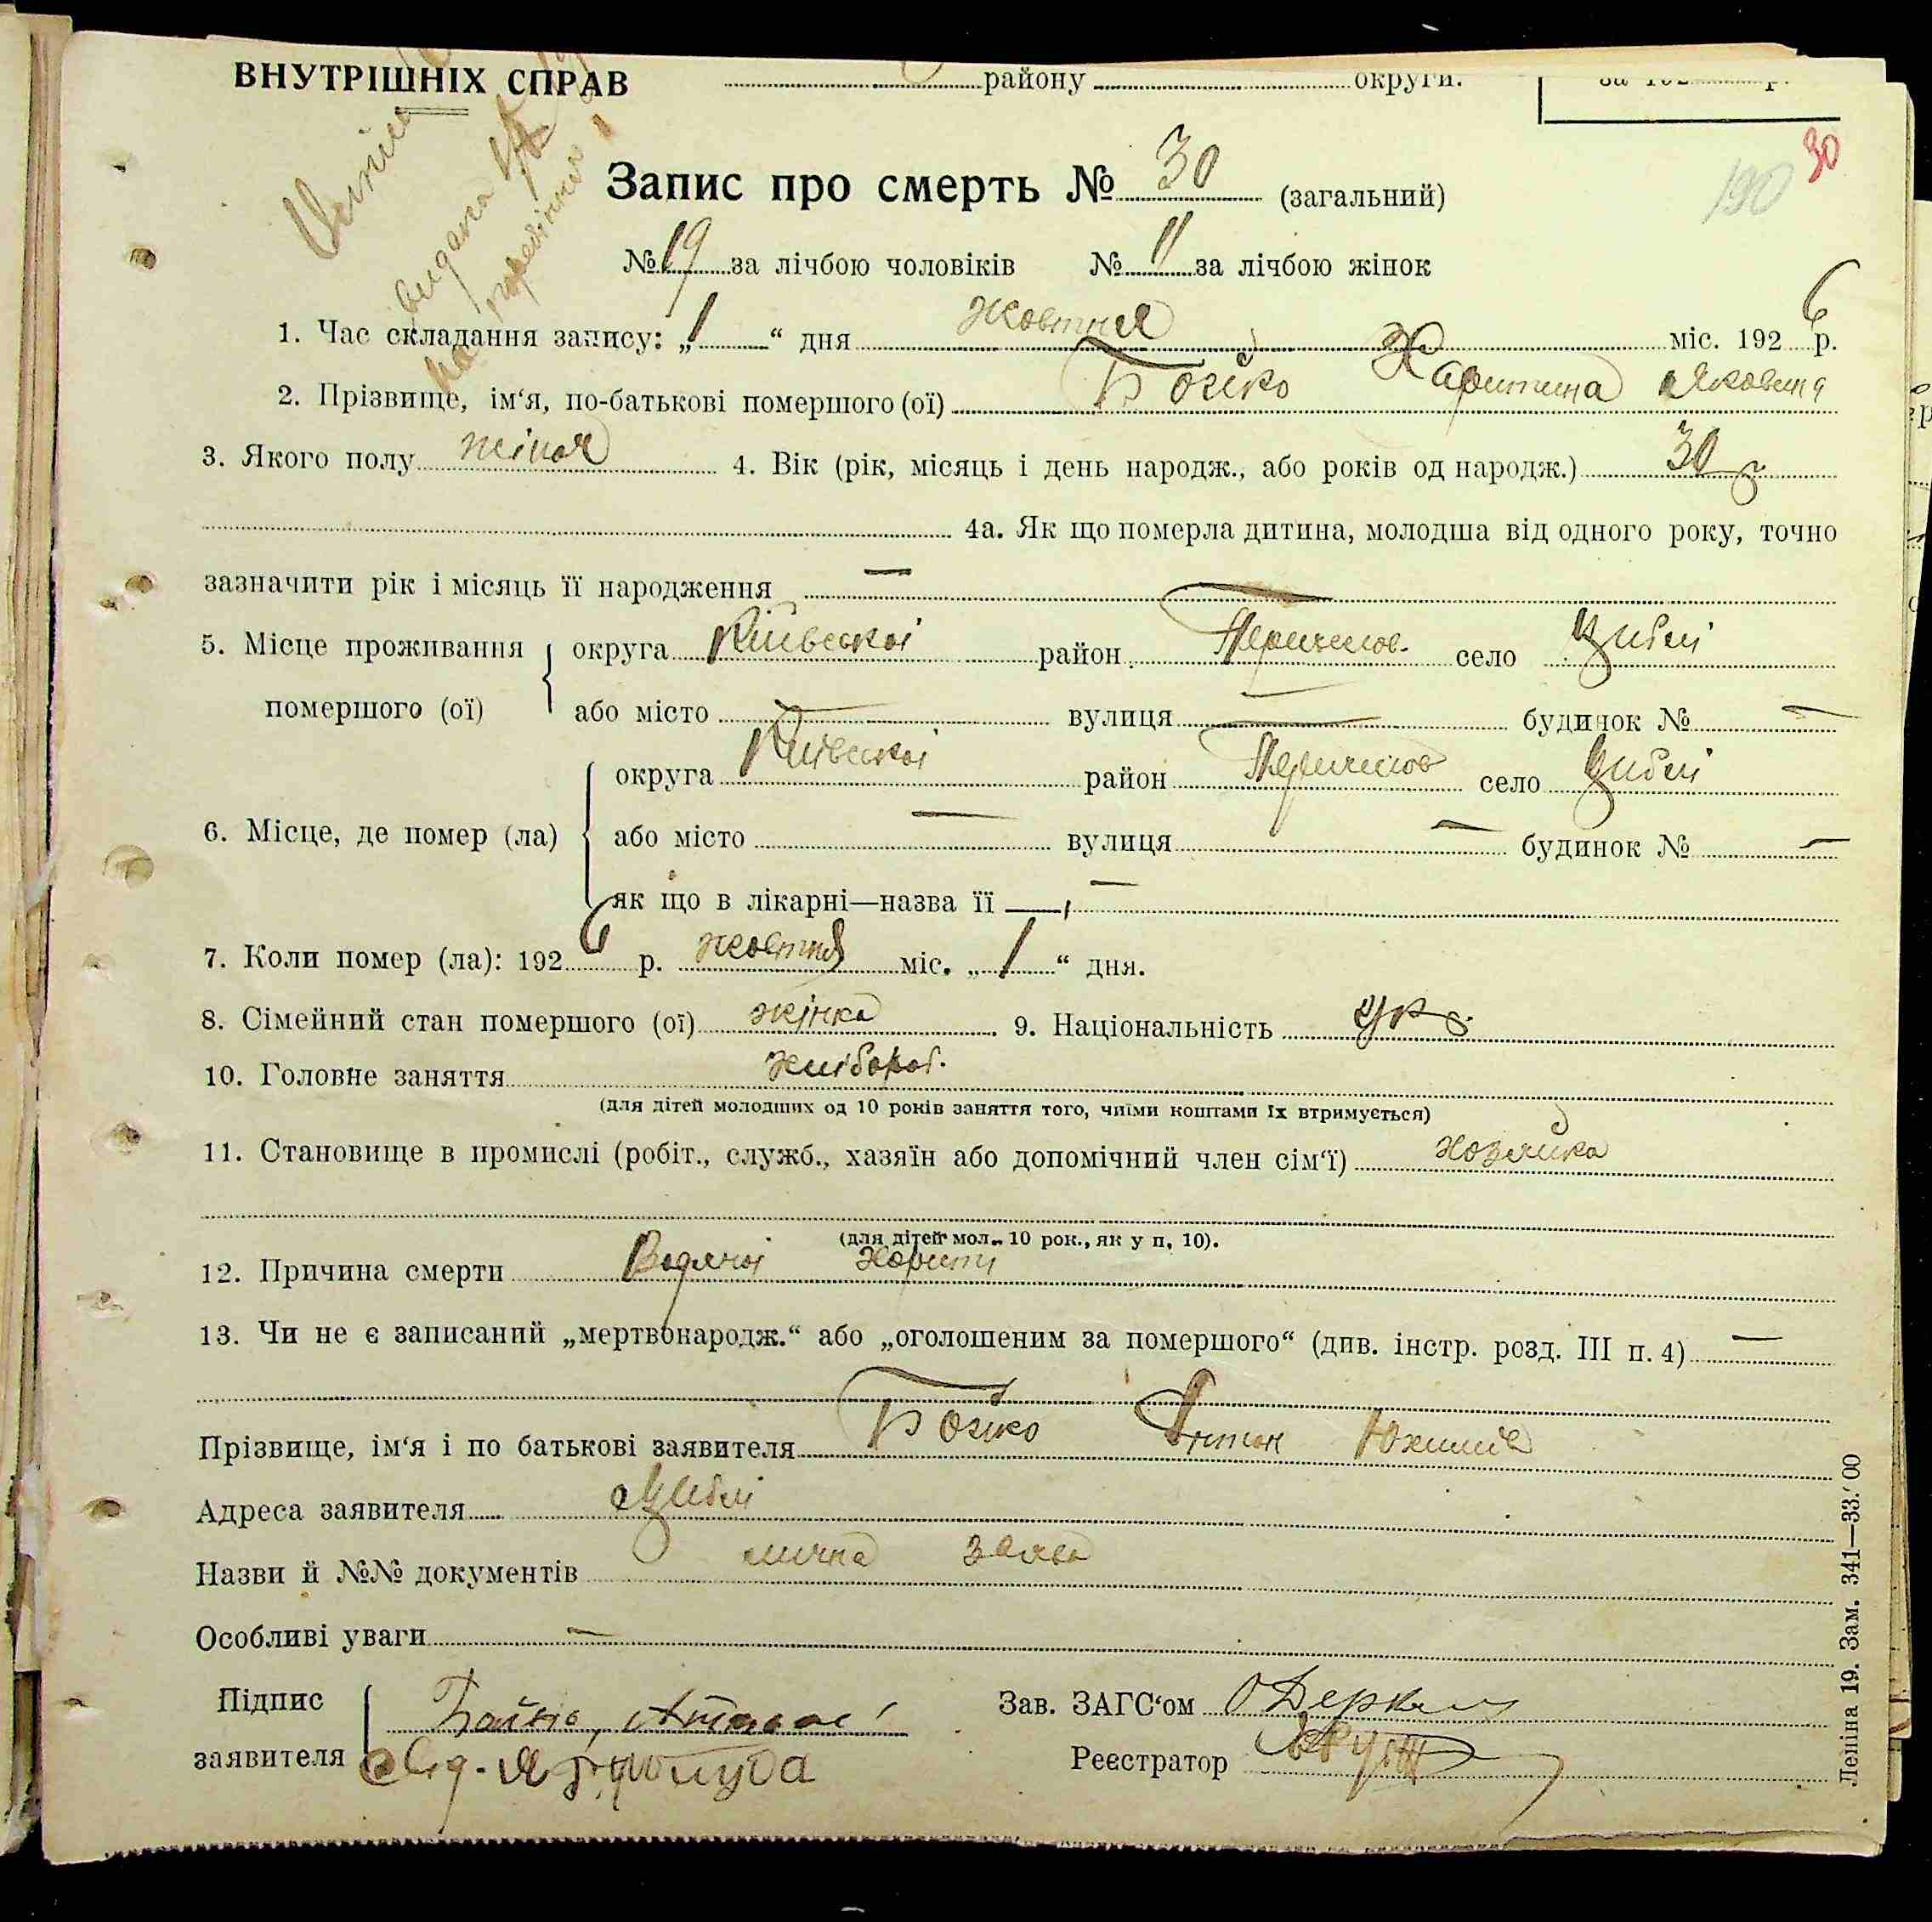 ВНУТРІШНІХ СПРАВ району округи. за 192 р.
Запис про смерть № 30 (загальний)
30
190
№ 19 за лічбою чоловіків № 11 за лічбою жінок
1. Час складання запису: „1“ дня жовтня міс. 1926 р.
2. Прізвище, ім‘я, по-батькові помершого (ої) Бойко Харитина Яковина
3. Якого полу жіноч 4. Вік (рік, місяць і день народж., або років од народж.) 30 р
4а. Як що померла дитина, молодша від одного року, точно
зазначити рік і місяць її народження —
5. Місце проживання помершого (ої) округа Київської район село Циблі
або місто — вулиця — будинок № —
6. Місце, де помер (ла) округа Київської район село Циблі
або місто — вулиця — будинок № —
як що в лікарні—назва її —
7. Коли помер (ла): 1926 р. жовтня міс. „1“ дня.
8. Сімейний стан помершого (ої) жінка 9. Національність укр.
10. Головне заняття хлібороб.
(для дітей молодших од 10 років заняття того, чиїми коштами їх втримується)
11. Становище в промислі (робіт., служб., хазяїн або допомічний член сім‘ї) хозяйка
(для дітей мол. 10 рок., як у п. 10).
12. Причина смерти Водяної
13. Чи не є записаний „мертвонародж.“ або „оголошеним за помершого“ (див. інстр. розд. III п. 4) —
Прізвище, ім‘я і по батькові заявителя Бойко Антон Юхимів
Адреса заявителя Циблі
Назви й №№ документів лична заява
Особливі уваги —
Підпис заявителя Бойко,
Зав. ЗАГС‘ом
Реєстратор
Леніна 19. Зам. 341—33.000